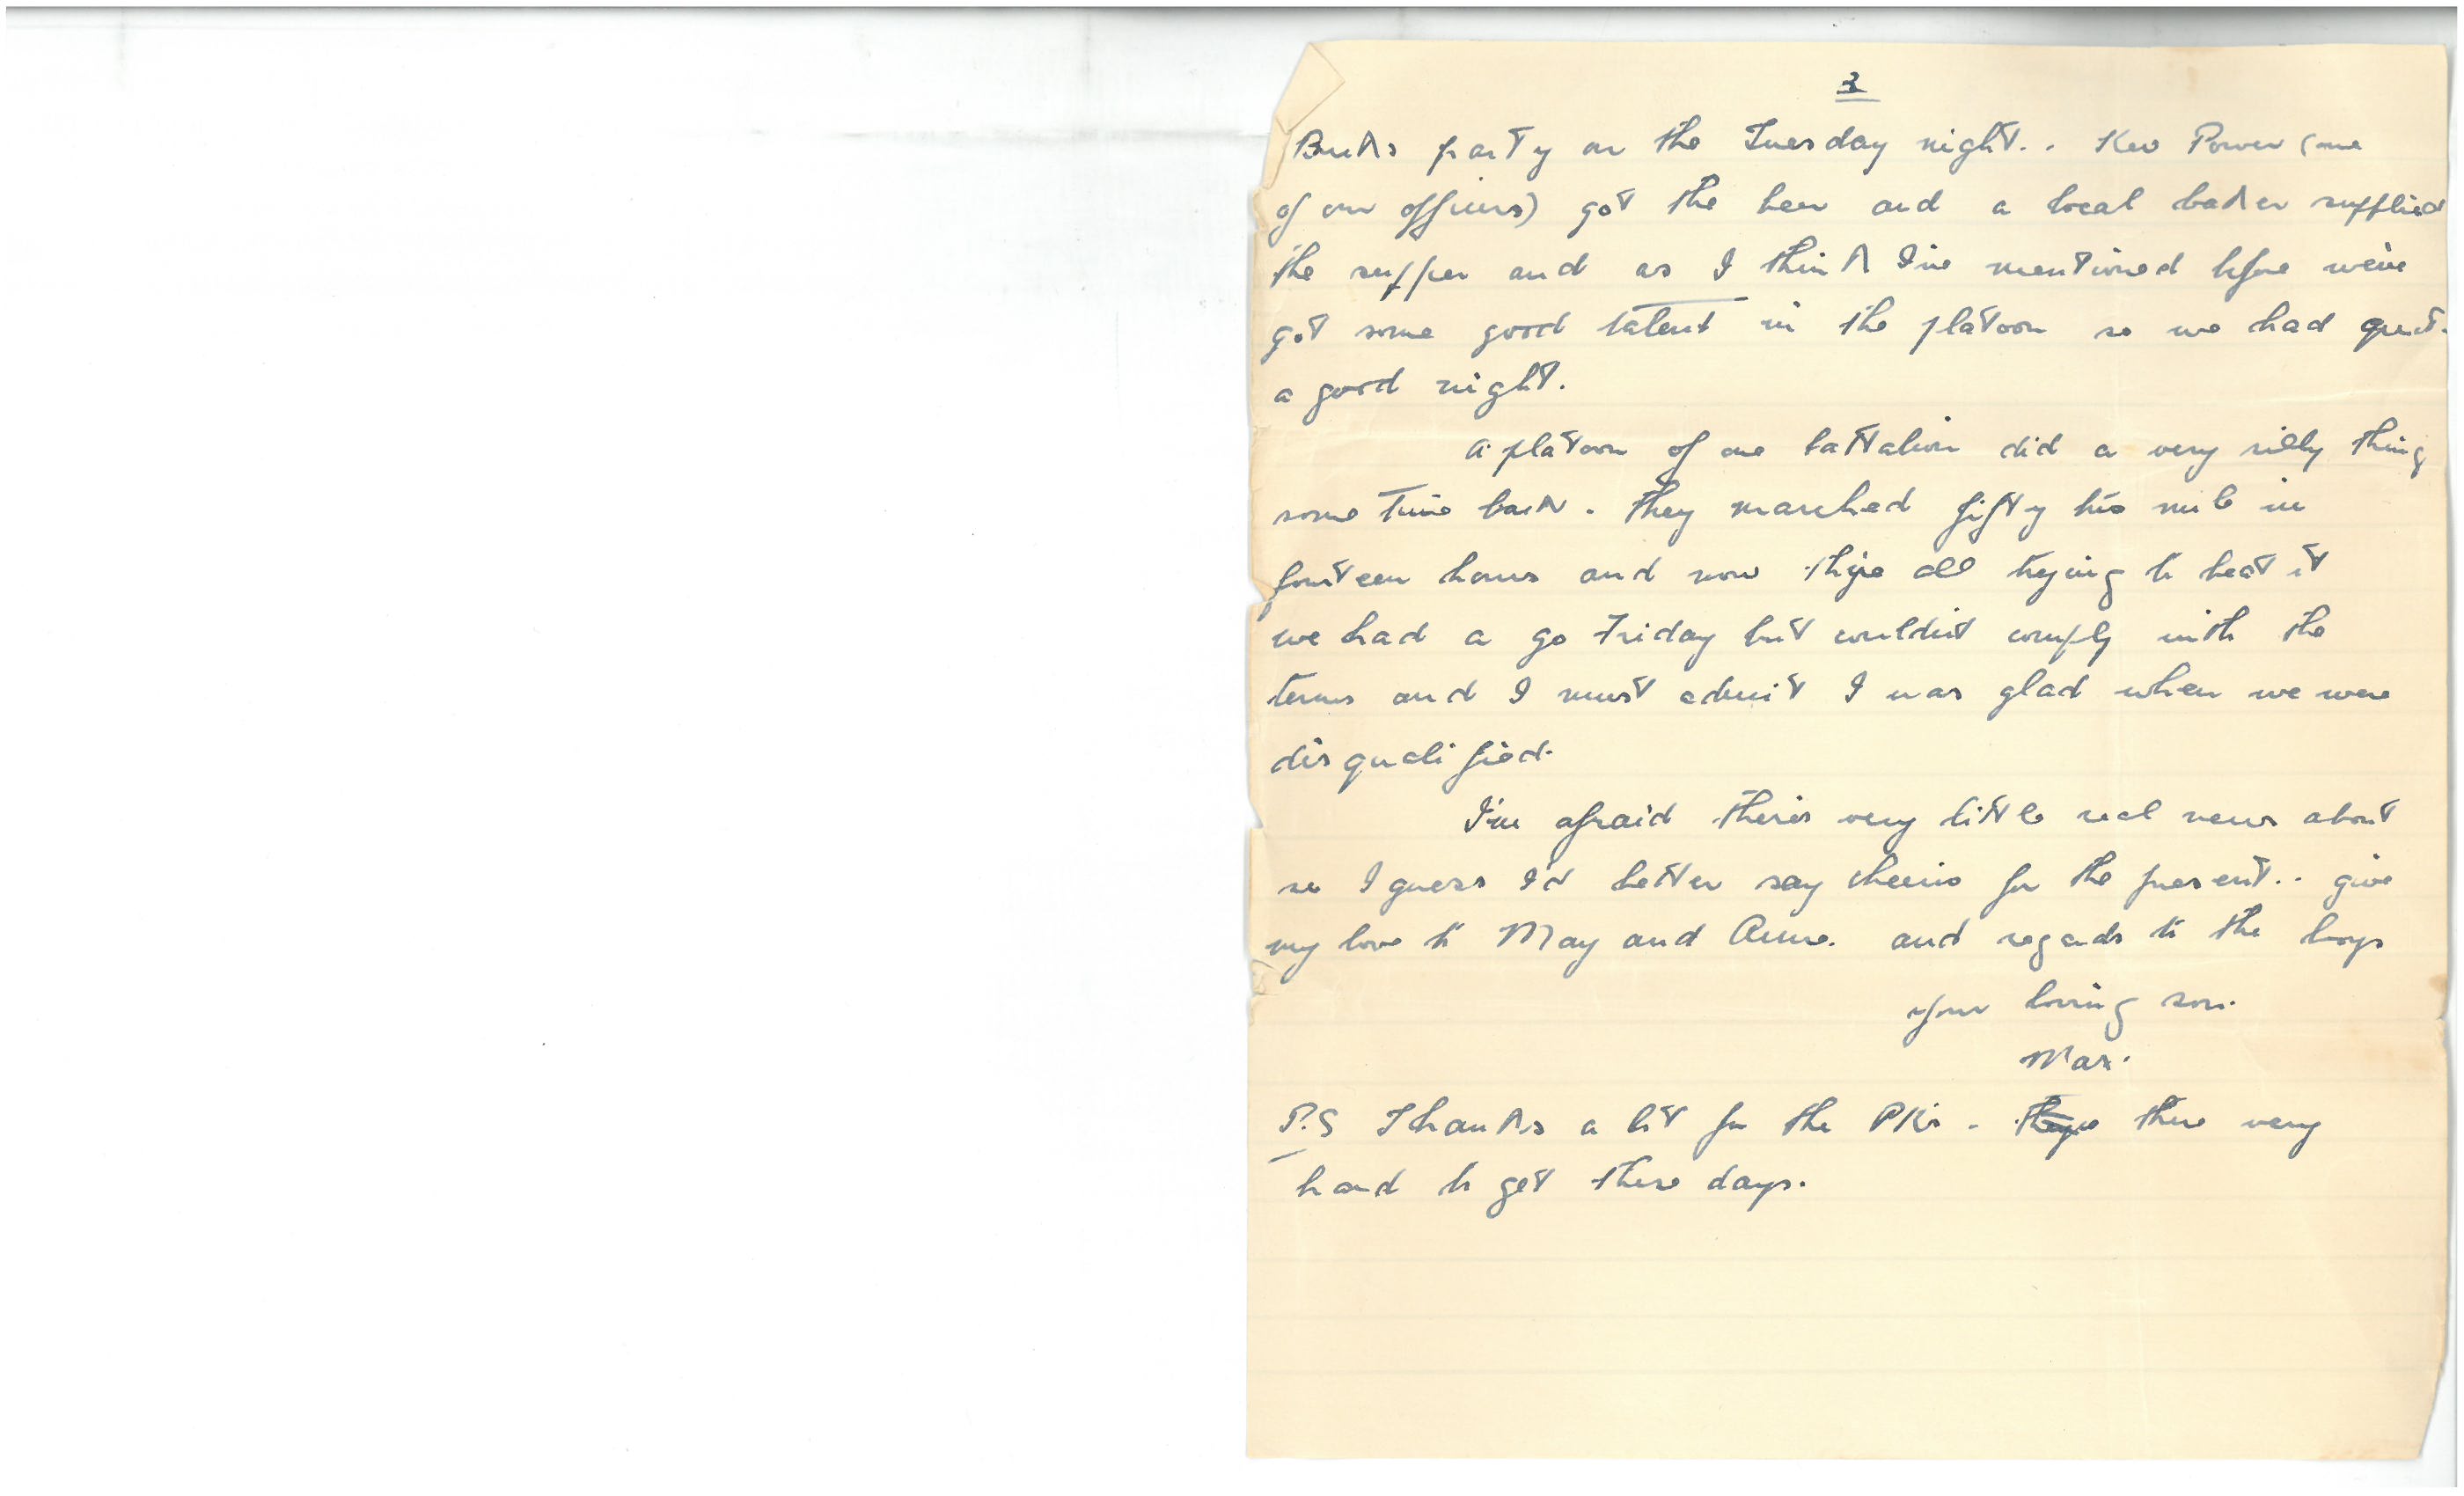 3
Bucks party on the Tuesday night.. Kev Power (one
of our officers) got the beer and a local baker supplied
the supper and as I think I've mentioned before we've
got some good talent in the platoon so we had quite
a good night.
A platoon of one battalion did a very silly thing
some time back. they marched fifty two mile in
fourteen hours and now they're all trying to beat it
we had a go Friday but couldn't comply with the
terms and I must admit I was glad when we were
disqualified.
I'm afraid there's very little real news about
so I guess I'd better say cheerio for the present.. give
my love to May and Anne. and regards to the boys
your loving son.
Max.
P.S Thanks a lot for the PKs - they're there very
hard to get these days.